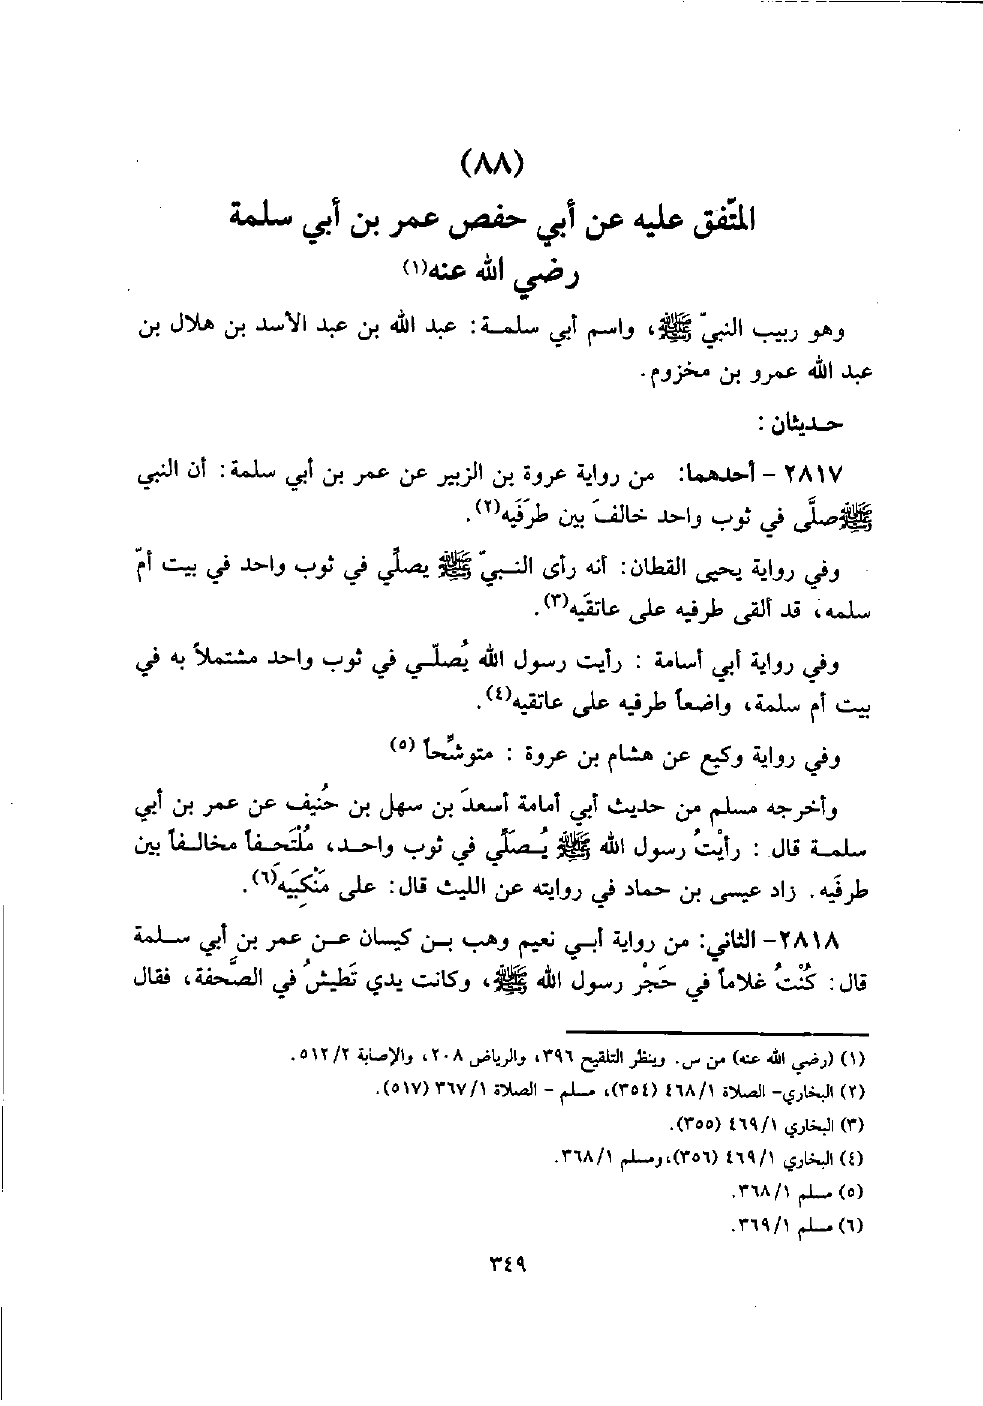 (٨٨)
المتّفق عليه عن أبي حفص عمر بن أبي سلمة
رضي الله عنه(١)
وهو ربيب النبيّ ﷺ، واسم أبي سلمة: عبد الله بن عبد الأسد بن هلال بن
عبد الله عمرو بن مخزوم.
حديثان :
٢٨١٧ - أحدهما: من رواية عروة بن الزبير عن عمر بن أبي سلمة: أن النبي
ﷺ صلَّى في ثوب واحد خالفَ بين طرَفَيه(٢).
وفي رواية يحيى القطان: أنه رأى النبيّ ﷺ يصلّي في ثوب واحد في بيت أمّ
سلمه، قد ألقى طرفيه على عاتقَيه(٣).
وفي رواية أبي أسامة : رأيت رسول الله يُصلّي في ثوب واحد مشتملاً به في
بيت أم سلمة، واضعاً طرفيه على عاتقيه(٤).
وفي رواية وكيع عن هشام بن عروة : متوشّحاً (٥)
وأخرجه مسلم من حديث أبي أمامة أسعدَ بن سهل بن حُنيف عن عمر بن أبي
سلمة قال : رأيْتُ رسول الله ﷺ يُصلّي في ثوب واحد، مُلْتَحفاً مخالفاً بين
طرفَيه. زاد عيسى بن حماد في روايته عن الليث قال: على مَنْكِبَيه(٦).
٢٨١٨- الثاني: من رواية أبي نعيم وهب بن كيسان عن عمر بن أبي سلمة
قال: كُنْتُ غلاماً في حَجْر رسول الله ﷺ، وكانت يدي تَطيشُ في الصَّحفة، فقال
(١) (رضي الله عنه) من س. وينظر التلقيح ٣٩٦، والرياض ٢٠٨، والإصابة ٥١٢/٢.
(٢) البخاري- الصلاة ٤٦٨/١ (٣٥٤)، مسلم - الصلاة ٣٦٧/١ (٥١٧).
(٣) البخاري ٤٦٩/١ (٣٥٥).
(٤) البخاري ٤٦٩/١ (٣٥٦)، ومسلم ٣٦٨/١.
(٥) مسلم ٣٦٨/١.
(٦) مسلم ٣٦٩/١.
٣٤٩